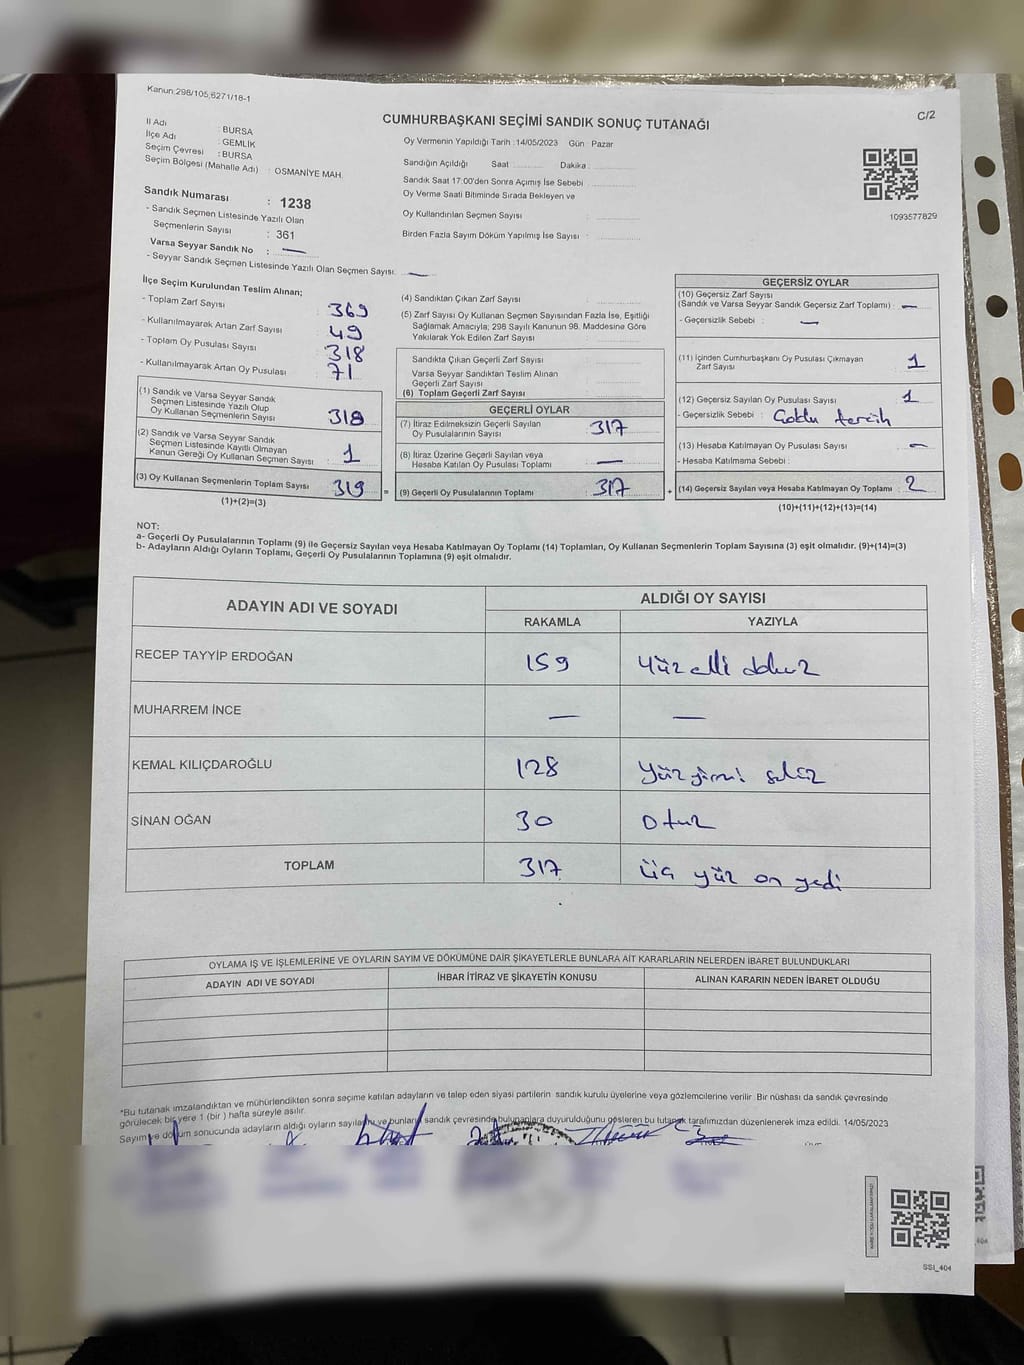 Kanun;298/105,6271/18-1
C/2
CUMHURBAŞKANI SEÇİMİ SANDIK SONUÇ TUTANAĞI
İl Adı : BURSA
İlçe Adı : GEMLIK
Seçim Çevresi : BURSA
Seçim Bölgesi (Mahalle Adı) : OSMANİYE MAH.
Oy Vermenin Yapıldığı Tarih :14/05/2023 Gün Pazar
Sandığın Açıldığı Saat Dakika :
Sandık Saat 17:00'den Sonra Açımış İse Sebebi :
Oy Verme Saati Bitiminde Sırada Bekleyen ve
Oy Kullandırılan Seçmen Sayısı :
Birden Fazla Sayım Döküm Yapılmış İse Sayısı :
1093577829
Sandık Numarası : 1238
- Sandık Seçmen Listesinde Yazılı Olan
Seçmenlerin Sayısı : 361
Varsa Seyyar Sandık No : —
- Seyyar Sandık Seçmen Listesinde Yazılı Olan Seçmen Sayısı: —
İlçe Seçim Kurulundan Teslim Alınan;
- Toplam Zarf Sayısı 369
- Kullanılmayarak Artan Zarf Sayısı : 49
- Toplam Oy Pusulası Sayısı : 318
- Kullanılmayarak Artan Oy Pusulası : 71
(1) Sandık ve Varsa Seyyar Sandık
Seçmen Listesinde Yazılı Olup
Oy Kullanan Seçmenlerin Sayısı : 318
(2) Sandık ve Varsa Seyyar Sandık
Seçmen Listesinde Kayıtlı Olmayan
Kanun Gereği Oy Kullanan Seçmen Sayısı : 1
(3) Oy Kullanan Seçmenlerin Toplam Sayısı : 319 =
(1)+(2)=(3)
(4) Sandıktan Çıkan Zarf Sayısı :
(5) Zarf Sayısı Oy Kullanan Seçmen Sayısından Fazla İse, Eşitliği
Sağlamak Amacıyla; 298 Sayılı Kanunun 98. Maddesine Göre
Yakılarak Yok Edilen Zarf Sayısı :
Sandıkta Çıkan Geçerli Zarf Sayısı :
Varsa Seyyar Sandıktan Teslim Alınan
Geçerli Zarf Sayısı :
(6) Toplam Geçerli Zarf Sayısı :
GEÇERLİ OYLAR
(7) İtiraz Edilmeksizin Geçerli Sayılan
Oy Pusulalarının Sayısı : 317
(8) İtiraz Üzerine Geçerli Sayılan veya
Hesaba Katılan Oy Pusulası Toplamı : —
(9) Geçerli Oy Pusulalarının Toplamı : 317 +
GEÇERSİZ OYLAR
(10) Geçersiz Zarf Sayısı
(Sandık ve Varsa Seyyar Sandık Geçersiz Zarf Toplamı) : —
- Geçersizlik Sebebi : —
(11) İçinden Cumhurbaşkanı Oy Pusulası Çıkmayan
Zarf Sayısı : 1
(12) Geçersiz Sayılan Oy Pusulası Sayısı : 1
- Geçersizlik Sebebi : Çoklu tercih
(13) Hesaba Katılmayan Oy Pusulası Sayısı : —
- Hesaba Katılmama Sebebi :
(14) Geçersiz Sayılan veya Hesaba Katılmayan Oy Toplamı : 2
(10)+(11)+(12)+(13)=(14)
NOT:
a- Geçerli Oy Pusulalarının Toplamı (9) ile Geçersiz Sayılan veya Hesaba Katılmayan Oy Toplamı (14) Toplamları, Oy Kullanan Seçmenlerin Toplam Sayısına (3) eşit olmalıdır. (9)+(14)=(3)
b- Adayların Aldığı Oyların Toplamı, Geçerli Oy Pusulalarının Toplamına (9) eşit olmalıdır.
ADAYIN ADI VE SOYADI ALDIĞI OY SAYISI
RAKAMLA YAZIYLA
RECEP TAYYİP ERDOĞAN 159 Yüz elli dokuz
MUHARREM İNCE — —
KEMAL KILIÇDAROĞLU 128 Yüz yirmi sekiz
SİNAN OĞAN 30 Otuz
TOPLAM 317 üç yüz on yedi
OYLAMA İŞ VE İŞLEMLERİNE VE OYLARIN SAYIM VE DÖKÜMÜNE DAİR ŞİKAYETLERLE BUNLARA AİT KARARLARIN NELERDEN İBARET BULUNDUKLARI
ADAYIN ADI VE SOYADI İHBAR İTİRAZ VE ŞİKAYETİN KONUSU ALINAN KARARIN NEDEN İBARET OLDUĞU
*Bu tutanak imzalandıktan ve mühürlendikten sonra seçime katılan adayların ve talep eden siyasi partilerin sandık kurulu üyelerine veya gözlemcilerine verilir. Bir nüshası da sandık çevresinde
görülecek bir yere 1 (bir) hafta süreyle asılır.
Sayım ve döküm sonucunda adayların aldığı oyların sayıları ve bunların sandık çevresinde bulunanlara duyurulduğunu gösteren bu tutanak tarafımızdan düzenlenerek imza edildi. 14/05/2023
SSI_404